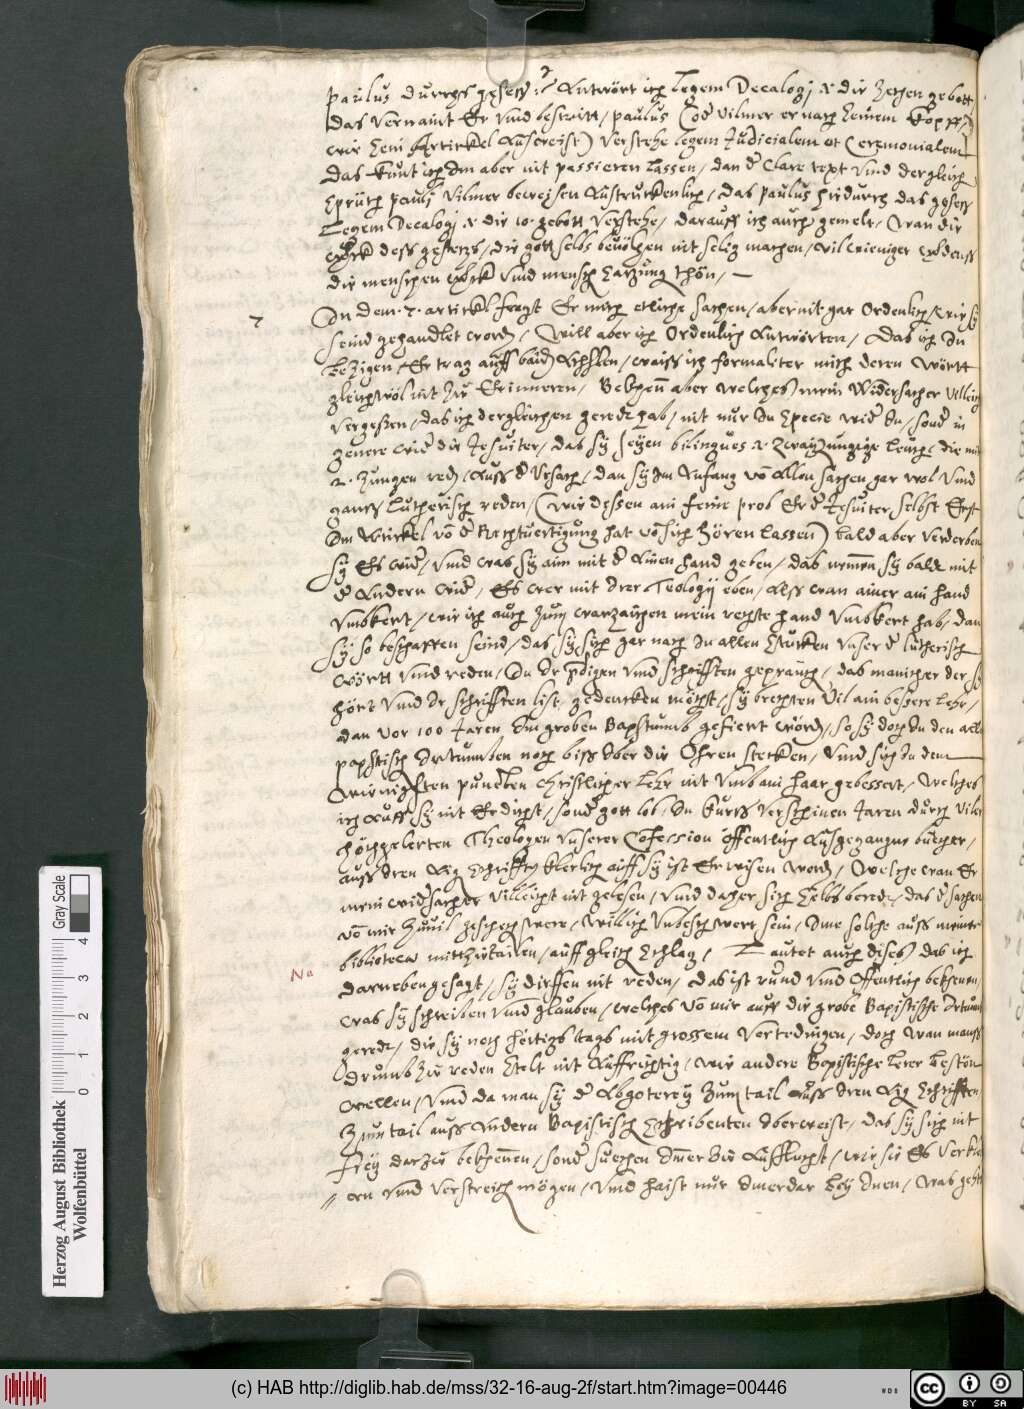 Paulus durchs gesetz :/: Antwort ich Legem Decalogj .&. die Zehen gebott
das vernaint Er vnd bestreitt / Paulus (od vilmer er nach seinem Kopff /
wie seni Artickel Ausweist) verstehe legem Judicialem et Ceremonialem
das kunt ich Im aber nit passieren lassen / dan d Clare text vnd dergleich
Sprüch Paulj vilmer beweisen Austruckenlich / das Paulus hirdurch das gesetz
Legem Decalogj .&. die 10. gebott verstehe / darauff ich auch gemelt / Wan die
werck dess gesetzs / die gott selbs bevolhen nit selig machen / vil weniger werdenss
die menschen werck vnd mensch satzung thon / —
7
In dem .7. artickel fregt Er mich etliche sachen / aber nit gar Ordenlich / wie sy
seind gehandlet word / Will aber ich Ordenlich Antworten / Das ich In
bezigen / Er trag auff baid Achslen / waiss ich formaliter mich deren wortt
gleichwol nit zu Erinneren / Bekhenn aber welches mein Widersacher villeich
vergessen / das ich dergleichen geredt hab / nit nur In specie wid In / sond in
genere wid die Jesuiter / das sy seyen bilingues .&. zwayzungige leuth / die mit
2. Zungen red / Auss d Vrsach / dan sy Im Anfang vo Allen sachen gar wol vnd
gantz Lutherisch reden / (wie dessen ain feine prob Er d Jesuiter selbst Erst
Im Artickel vo d Rechtuertigung hat vo sich hören lassen) bald aber verderben
sy Es wid / vnd was sy aim mit d Ainen hand geben / das nemen sy bald mit
d Andern wid / Es wer mit Irer Teologij eben / Alss wan ainer ain hand
vmbkert / wie ich auch zum warzaichen mein rechte hand vmbkert hab / dan
sy so beschaffen seind / das sy sich gar nach In allen Stucken vnser d lutherisch
wortt vnd reden / In Ir pdigen vnd schrifften gepraucht / das mancher der sy
hört vnd Ir schrifften list / gedencken möcht / sy brechten vil ain bessere lehr /
dan vor 100 Jaren Im groben Bapstumb gefiert word / so sy doch In den alten
papstisch Irrtumben noch biss über die Ohren stecken / vnd sich In dem
wenigsten puncten Christlicher lehr nit vmb ain haar gebessert / welches
ich Auff sy nit Erdicht / sond gott lob / In kurtz verschinen Jaren durch viler
hochgelerten Theologen vnserer Cofession offentlich Ausgegangne buecher /
auss Iren Aig Schrifften klerlich auff sy ist Erwisen word / Welche wan Er
mein widsacher villeicht nit gelesen / vnd daher sich selbs beredt / das d sachen
vo mir zuuil geschech were / will ich vnbeschwert sein / Ime solche auss meiner
bibliotecа mitthzutailen / auff gleich Schlag / Lautet auch dises / das ich
Na
darneben gesagt / sy dirffen nit reden / das ist rund vnd Offentlich bekhenen /
was sy schreiben vnd glauben / welches vo mir auff die grobe Bapistische Irtumb
geredt / die sy noch heitigs tags mit grossem vertedingen / doch wan manss
drumb zu reden stelt nit Auffrichtig / wie andere Bapistische lerer beston
wellen / vnd da man sy d Abgoterey zum tail Auss Iren Aig Schrifften
Zum tail auss Andern Bapistisch Schribenten Iberweist / das sy sich nit
frey darzu bekhenen / sond suechen Imer Ein Aufflucht / wie sie Es verkle
wn vnd verstreich mögen / vnd haist nur Imerdar bey Inen / was geht
Herzog August Bibliothek
Wolfenbüttel
0 1 2 3 4
Gray Scale
(c) HAB http://diglib.hab.de/mss/32-16-aug-2f/start.htm?image=00446
WDB
CC BY SA